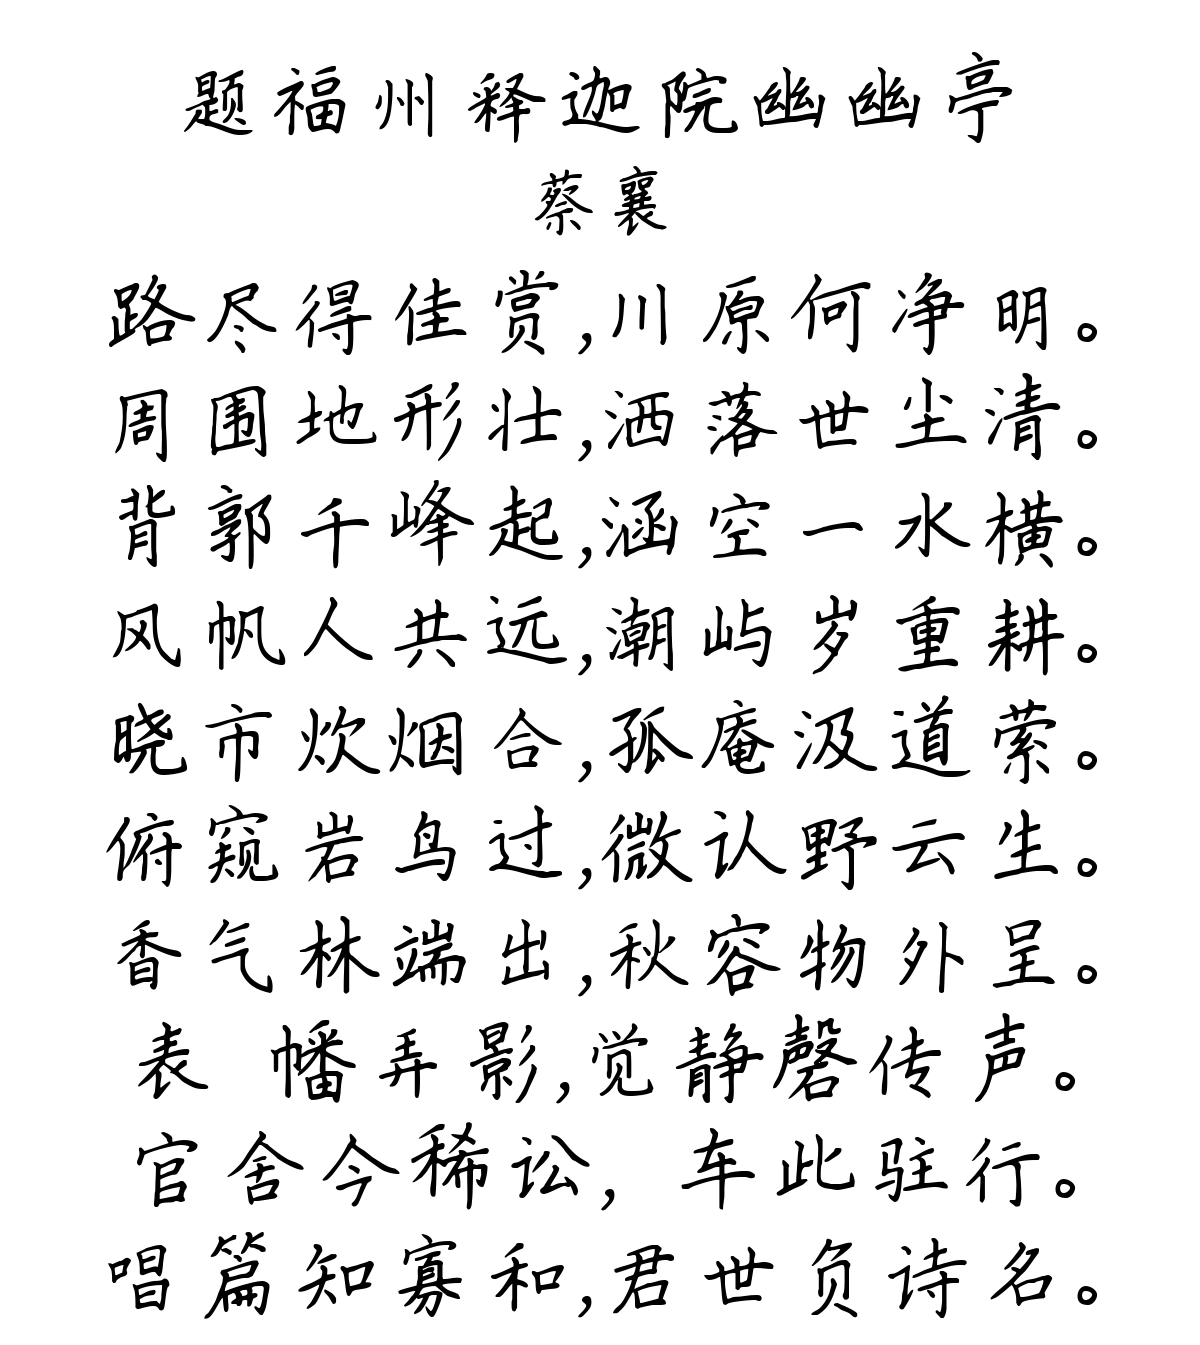 题福州释迦院幽幽亭
蔡襄
路尽得佳赏,川原何净明。
周围地形壮,洒落世尘清。
背郭千峰起,涵空一水横。
风帆人共远,潮屿岁重耕。
晓市炊烟合,孤庵汲道萦。
俯窥岩鸟过,微认野云生。
香气林端出,秋容物外呈。
表 幡弄影,觉静磬传声。
官舍今稀讼, 车此驻行。
唱篇知寡和,君世负诗名。